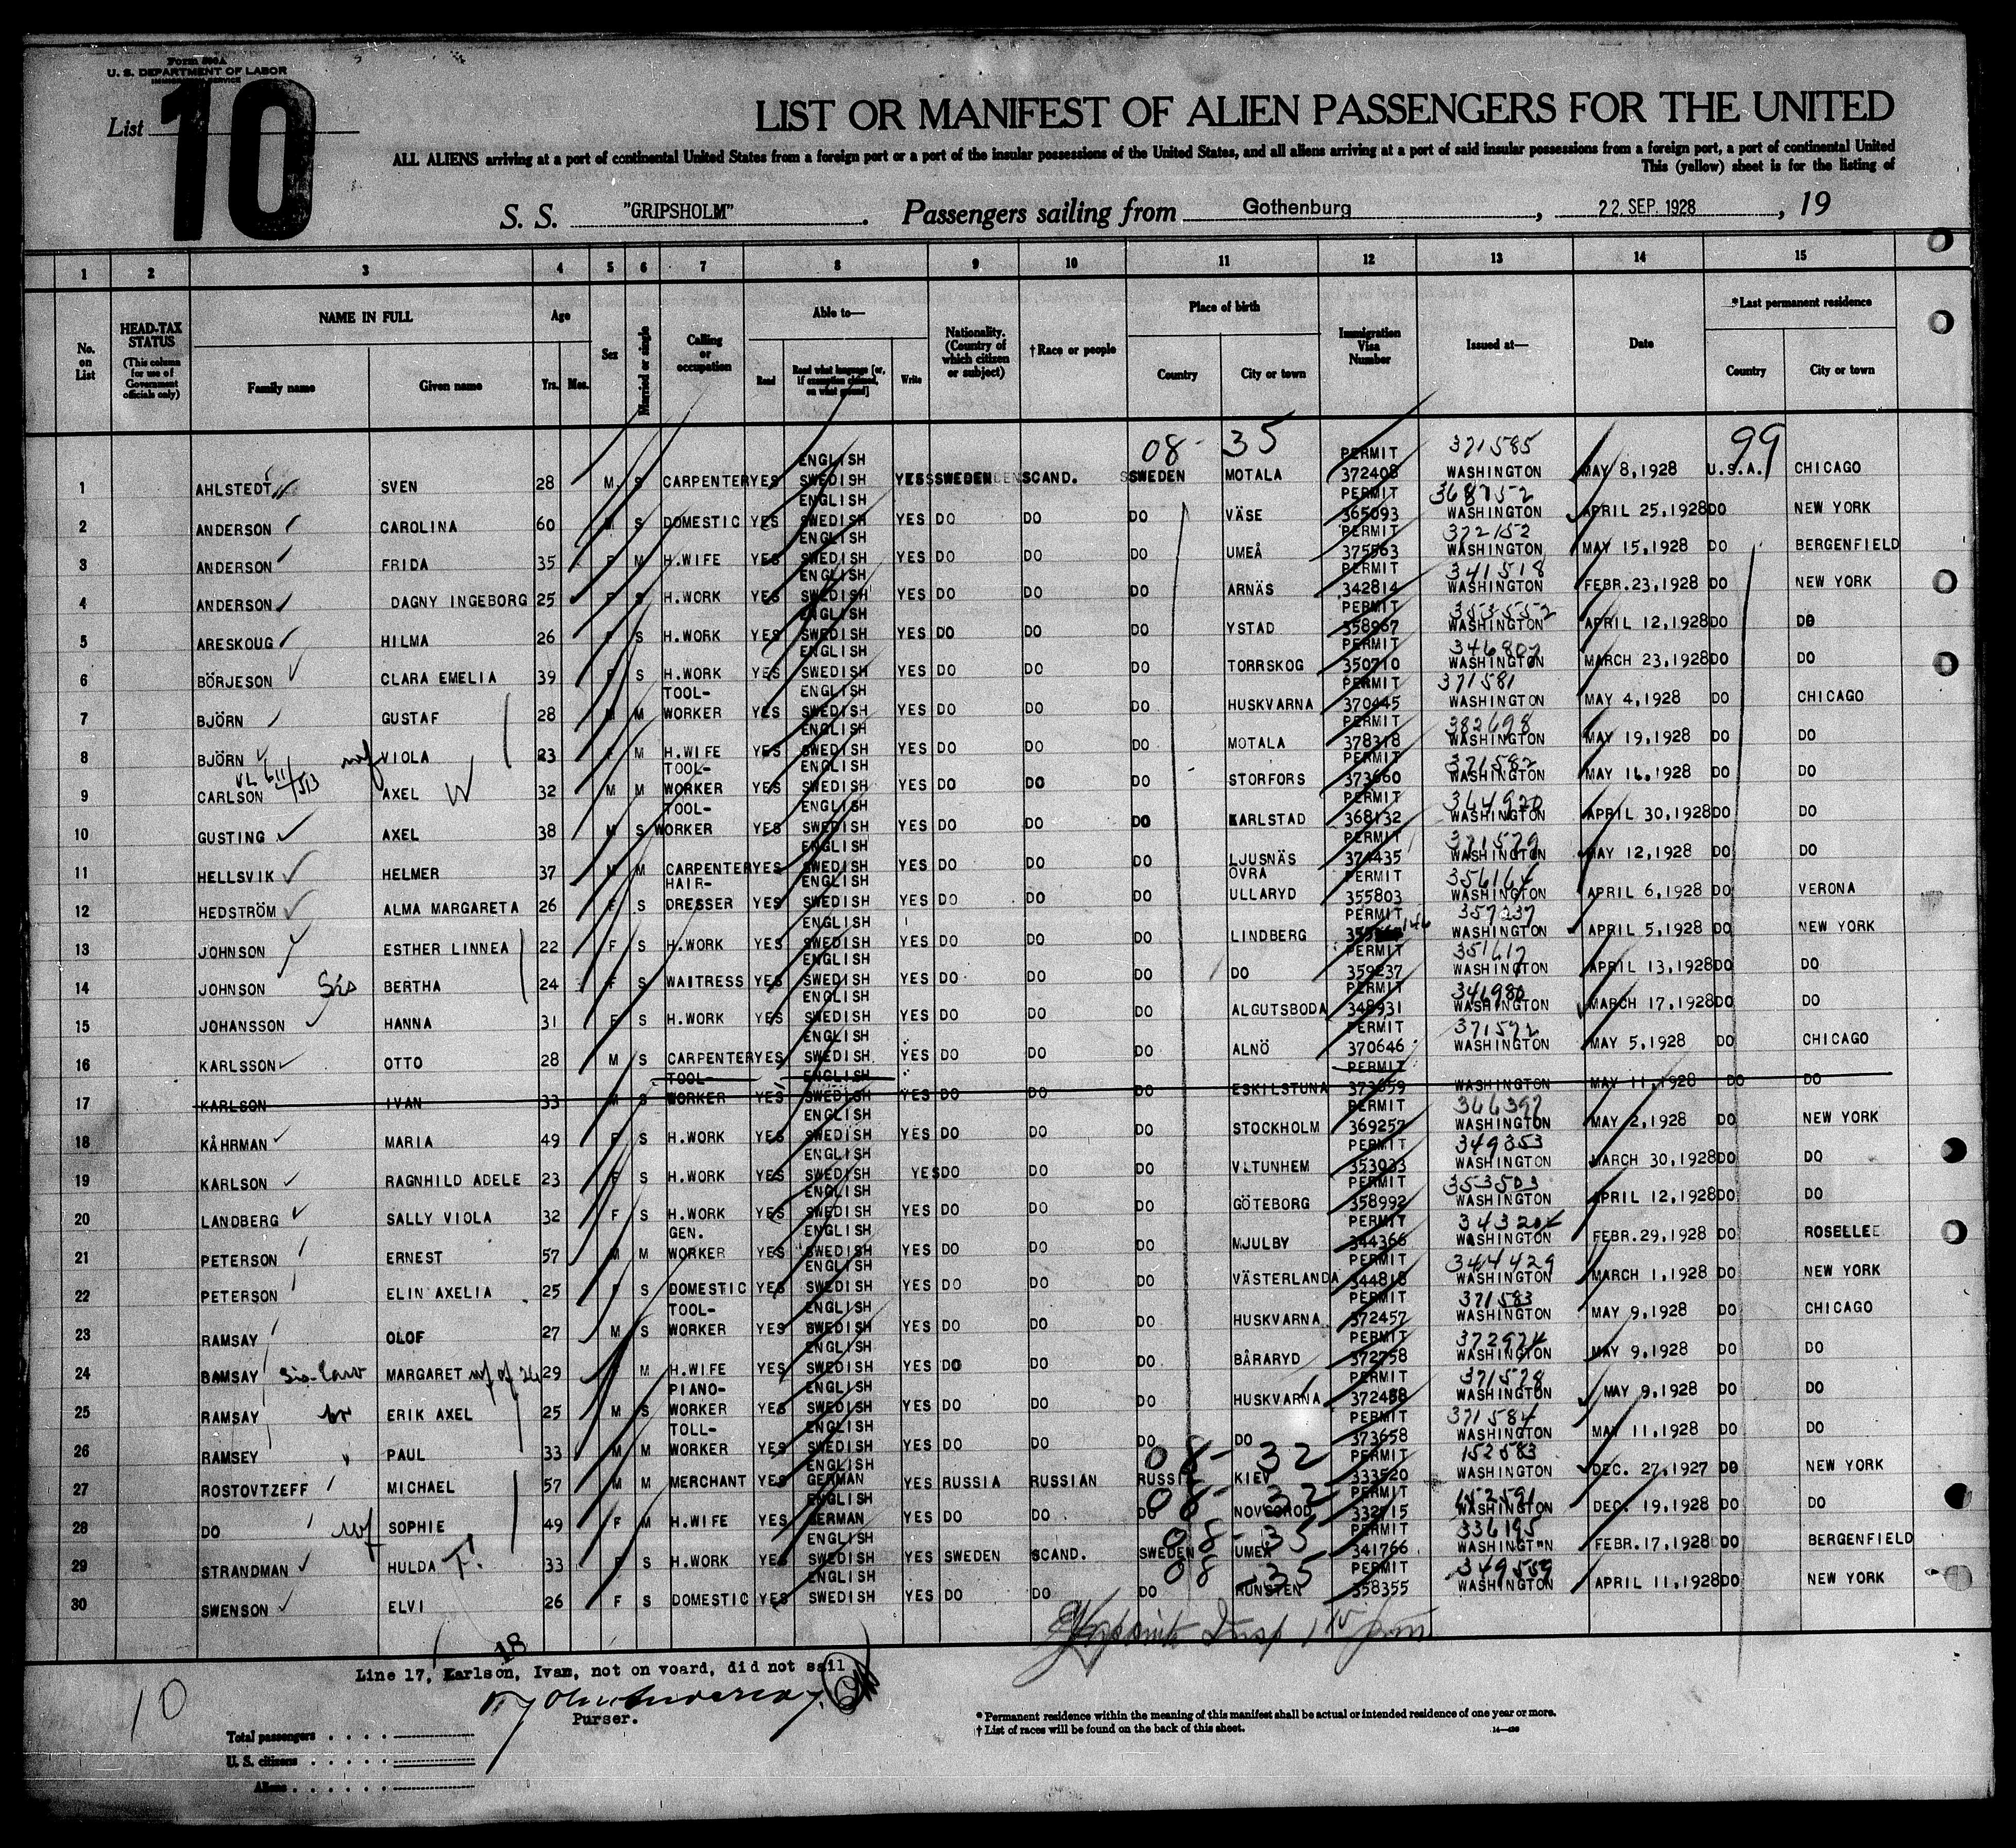 Form 500A
U. S. DEPARTMENT OF LABOR
IMMIGRATION SERVICE
List 10
LIST OR MANIFEST OF ALIEN PASSENGERS FOR THE UNITED
ALL ALIENS arriving at a port of continental United States from a foreign port or a port of the insular possessions of the United States, and all aliens arriving at a port of said insular possessions from a foreign port, a port of continental United
This (yellow) sheet is for the listing of
S. S. "GRIPSHOLM". Passengers sailing from Gothenburg, 22. SEP. 1928, 19
1 2 3 4 5 6 7 8 9 10 11 12 13 14 15
No. on List
HEAD-TAX STATUS (This column for use of Government officials only)
NAME IN FULL Family name Given name
Age Yrs. Mos.
Sex
Married or single
Calling or occupation
Able to— Read Read what language [or, if exemption claimed, on what ground] Write
Nationality. (Country of which citizen or subject)
†Race or people
Place of birth Country City or town
Immigration Visa Number
Issued at—
Date
*Last permanent residence Country City or town
08-35 99
1 AHLSTEDT SVEN 28 M S CARPENTER YES ENGLISH SWEDISH YES SWEDEN SCAND. SWEDEN MOTALA PERMIT 372408 371585 WASHINGTON MAY 8,1928 U.S.A. CHICAGO
2 ANDERSON CAROLINA 60 S DOMESTIC YES ENGLISH SWEDISH YES DO DO DO VÄSE PERMIT 365093 368752 WASHINGTON APRIL 25,1928 DO NEW YORK
3 ANDERSON FRIDA 35 F M H.WIFE YES ENGLISH SWEDISH YES DO DO DO UMEÅ PERMIT 375563 372152 WASHINGTON MAY 15,1928 DO BERGENFIELD
4 ANDERSON DAGNY INGEBORG 25 F S H.WORK YES ENGLISH SWEDISH YES DO DO DO ARNÄS PERMIT 342814 341518 WASHINGTON FEBR.23,1928 DO NEW YORK
5 ARESKOUG HILMA 26 F S H.WORK YES ENGLISH SWEDISH YES DO DO DO YSTAD PERMIT 358967 353552 WASHINGTON APRIL 12,1928 DO DO
6 BÖRJESON CLARA EMELIA 39 F S H.WORK YES ENGLISH SWEDISH YES DO DO DO TORRSKOG PERMIT 350710 346802 WASHINGTON MARCH 23,1928 DO DO
7 BJÖRN GUSTAF 28 M M TOOL-WORKER YES ENGLISH SWEDISH YES DO DO DO HUSKVARNA PERMIT 370445 371581 WASHINGTON MAY 4,1928 DO CHICAGO
8 BJÖRN wf VIOLA 23 F M H.WIFE YES ENGLISH SWEDISH YES DO DO DO MOTALA PERMIT 378318 382698 WASHINGTON MAY 19,1928 DO DO
9 CARLSON VL 611/513 AXEL 32 M M TOOL-WORKER YES ENGLISH SWEDISH YES DO DO DO STORFORS PERMIT 373660 371582 WASHINGTON MAY 16,1928 DO DO
10 GUSTING AXEL 38 M S TOOL-WORKER YES ENGLISH SWEDISH YES DO DO DO KARLSTAD PERMIT 368132 364920 WASHINGTON APRIL 30,1928 DO DO
11 HELLSVIK HELMER 37 M M CARPENTER YES ENGLISH SWEDISH YES DO DO DO LJUSNÄS PERMIT 374435 371579 WASHINGTON MAY 12,1928 DO DO
12 HEDSTRÖM ALMA MARGARETA 26 F S HAIR-DRESSER YES ENGLISH SWEDISH YES DO DO DO ÖVRA ULLARYD PERMIT 355803 356164 WASHINGTON APRIL 6,1928 DO VERONA
13 JOHNSON ESTHER LINNEA 22 F S H.WORK YES ENGLISH SWEDISH YES DO DO DO LINDBERG PERMIT 146 357237 WASHINGTON APRIL 5,1928 DO NEW YORK
14 JOHNSON Sis BERTHA 24 F S WAITRESS YES ENGLISH SWEDISH YES DO DO DO DO PERMIT 359237 351617 WASHINGTON APRIL 13,1928 DO DO
15 JOHANSSON HANNA 31 F S H.WORK YES ENGLISH SWEDISH YES DO DO DO ALGUTSBODA PERMIT 348931 341980 WASHINGTON MARCH 17,1928 DO DO
16 KARLSSON OTTO 28 M S CARPENTER YES ENGLISH SWEDISH YES DO DO DO ALNÖ PERMIT 370646 371572 WASHINGTON MAY 5,1928 DO CHICAGO
17 KARLSON IVAN 33 M S TOOL-WORKER YES ENGLISH SWEDISH YES DO DO DO ESKILSTUNA PERMIT 373659 WASHINGTON MAY 11,1928 DO DO
18 KÅHRMAN MARIA 49 F S H.WORK YES ENGLISH SWEDISH YES DO DO DO STOCKHOLM PERMIT 369257 366397 WASHINGTON MAY 2,1928 DO NEW YORK
19 KARLSON RAGNHILD ADELE 23 F S H.WORK YES ENGLISH SWEDISH YES DO DO DO VLTUNHEM PERMIT 353033 349353 WASHINGTON MARCH 30,1928 DO DO
20 LANDBERG SALLY VIOLA 32 F S H.WORK YES ENGLISH SWEDISH YES DO DO DO GÖTEBORG PERMIT 358992 353503 WASHINGTON APRIL 12,1928 DO DO
21 PETERSON ERNEST 57 M M GEN. WORKER YES ENGLISH SWEDISH YES DO DO DO MJULBY PERMIT 344366 343204 WASHINGTON FEBR.29,1928 DO ROSELLE
22 PETERSON ELIN AXELIA 25 F S DOMESTIC YES ENGLISH SWEDISH YES DO DO DO VÄSTERLANDA PERMIT 344818 344429 WASHINGTON MARCH 1,1928 DO NEW YORK
23 RAMSAY OLOF 27 M S TOOL-WORKER YES ENGLISH SWEDISH YES DO DO DO HUSKVARNA PERMIT 372457 371583 WASHINGTON MAY 9,1928 DO CHICAGO
24 RAMSAY Sis-law MARGARET wf of 26 29 M H.WIFE YES ENGLISH SWEDISH YES DO DO DO BÅRARYD PERMIT 372758 372974 WASHINGTON MAY 9,1928 DO DO
25 RAMSAY br ERIK AXEL 25 M S PIANO-WORKER YES ENGLISH SWEDISH YES DO DO DO HUSKVARNA PERMIT 372458 371578 WASHINGTON MAY 9,1928 DO DO
26 RAMSEY " PAUL 33 M M TOLL-WORKER YES ENGLISH SWEDISH YES DO DO DO DO PERMIT 373658 371584 WASHINGTON MAY 11,1928 DO DO
08-32
27 ROSTOVTZEFF MICHAEL 57 M M MERCHANT YES ENGLISH GERMAN YES RUSSIA RUSSIAN RUSSI KIEV PERMIT 333520 152583 WASHINGTON DEC. 27,1927 DO NEW YORK
08-32
28 DO wf SOPHIE 49 F M H.WIFE YES ENGLISH GERMAN YES DO DO DO NOVGOROD PERMIT 332915 152591 WASHINGTON DEC. 19,1928 DO DO
08-35
29 STRANDMAN HULDA T! 33 F S H.WORK YES ENGLISH SWEDISH YES SWEDEN SCAND. SWEDEN UMEÅ PERMIT 341766 336195 WASHINGTON FEBR.17,1928 DO BERGENFIELD
08-35
30 SWENSON ELVI 26 F S DOMESTIC YES ENGLISH SWEDISH YES DO DO DO RUNSTEN PERMIT 358355 349559 WASHINGTON APRIL 11,1928 DO NEW YORK
18
Line 17, Karlson, Ivan, not on voard, did not sail
Purser.
10
Total passengers
U. S. citizens
Aliens
* Permanent residence within the meaning of this manifest shall be actual or intended residence of one year or more.
† List of races will be found on the back of this sheet.